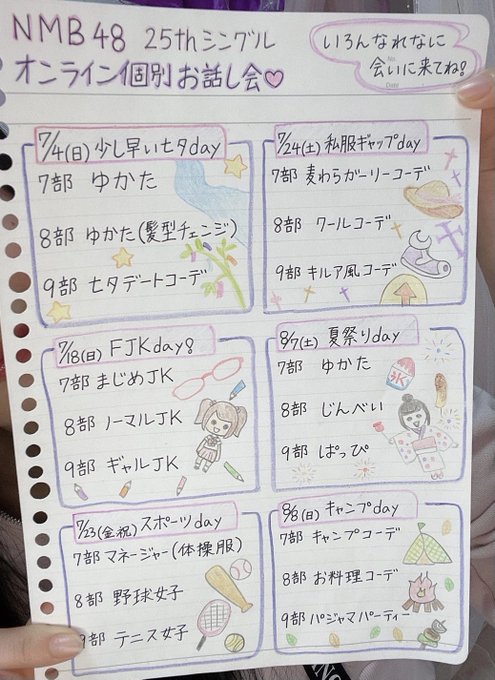 NMB48 25thシングル
オンライン個別お話し会♡
いろんなれなに
会いに来てね!
No.
Date
7/4(日) 少し早い七夕day
7部 ゆかた
8部 ゆかた(髪型チェンジ)
9部 七夕デートコーデ
7/24(土) 私服ギャップday
7部 麦わらガーリーコーデ
8部 クールコーデ
9部 キルア風コーデ
7/18(日) FJKday♡
7部 まじめJK
8部 ノーマルJK
9部 ギャルJK
8/7(土) 夏祭りday
7部 ゆかた
8部 じんべい
9部 はっぴ
氷
7/23(金祝) スポーツday
7部 マネージャー(体操服)
8部 野球女子
9部 テニス女子
8/8(日) キャンプday
7部 キャンプコーデ
8部 お料理コーデ
9部 パジャマパーティー